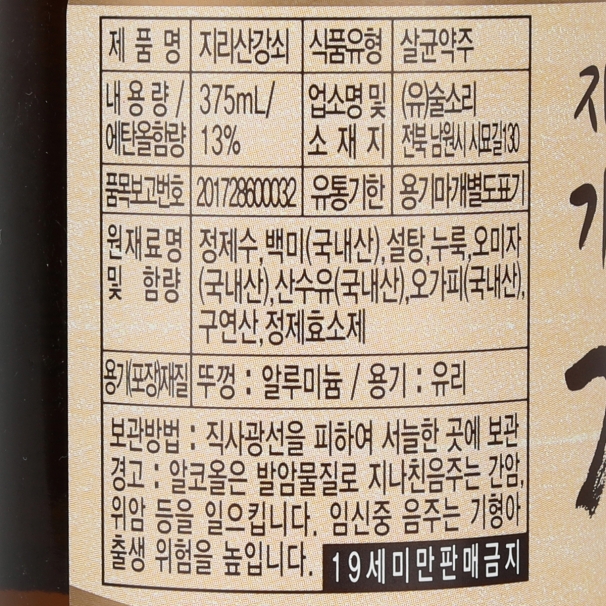 제 품 명 지리산강쇠 식품유형 살균약주
내 용 량 / 375mL/ 업소명 및 (유)술소리
에탄올함량 13% 소 재 지 전북 남원시 시묘길130
품목보고번호 201728600032 유통기한 용기마개별도표기
원 재 료 명 정제수,백미(국내산),설탕,누룩,오미자
및 함량 (국내산),산수유(국내산),오가피(국내산),
구연산,정제효소제
용기(포장)재질 뚜껑 : 알루미늄 / 용기 : 유리
보관방법 : 직사광선을 피하여 서늘한 곳에 보관
경고 : 알코올은 발암물질로 지나친음주는 간암,
위암 등을 일으킵니다. 임신중 음주는 기형아
출생 위험을 높입니다. 19세미만판매금지